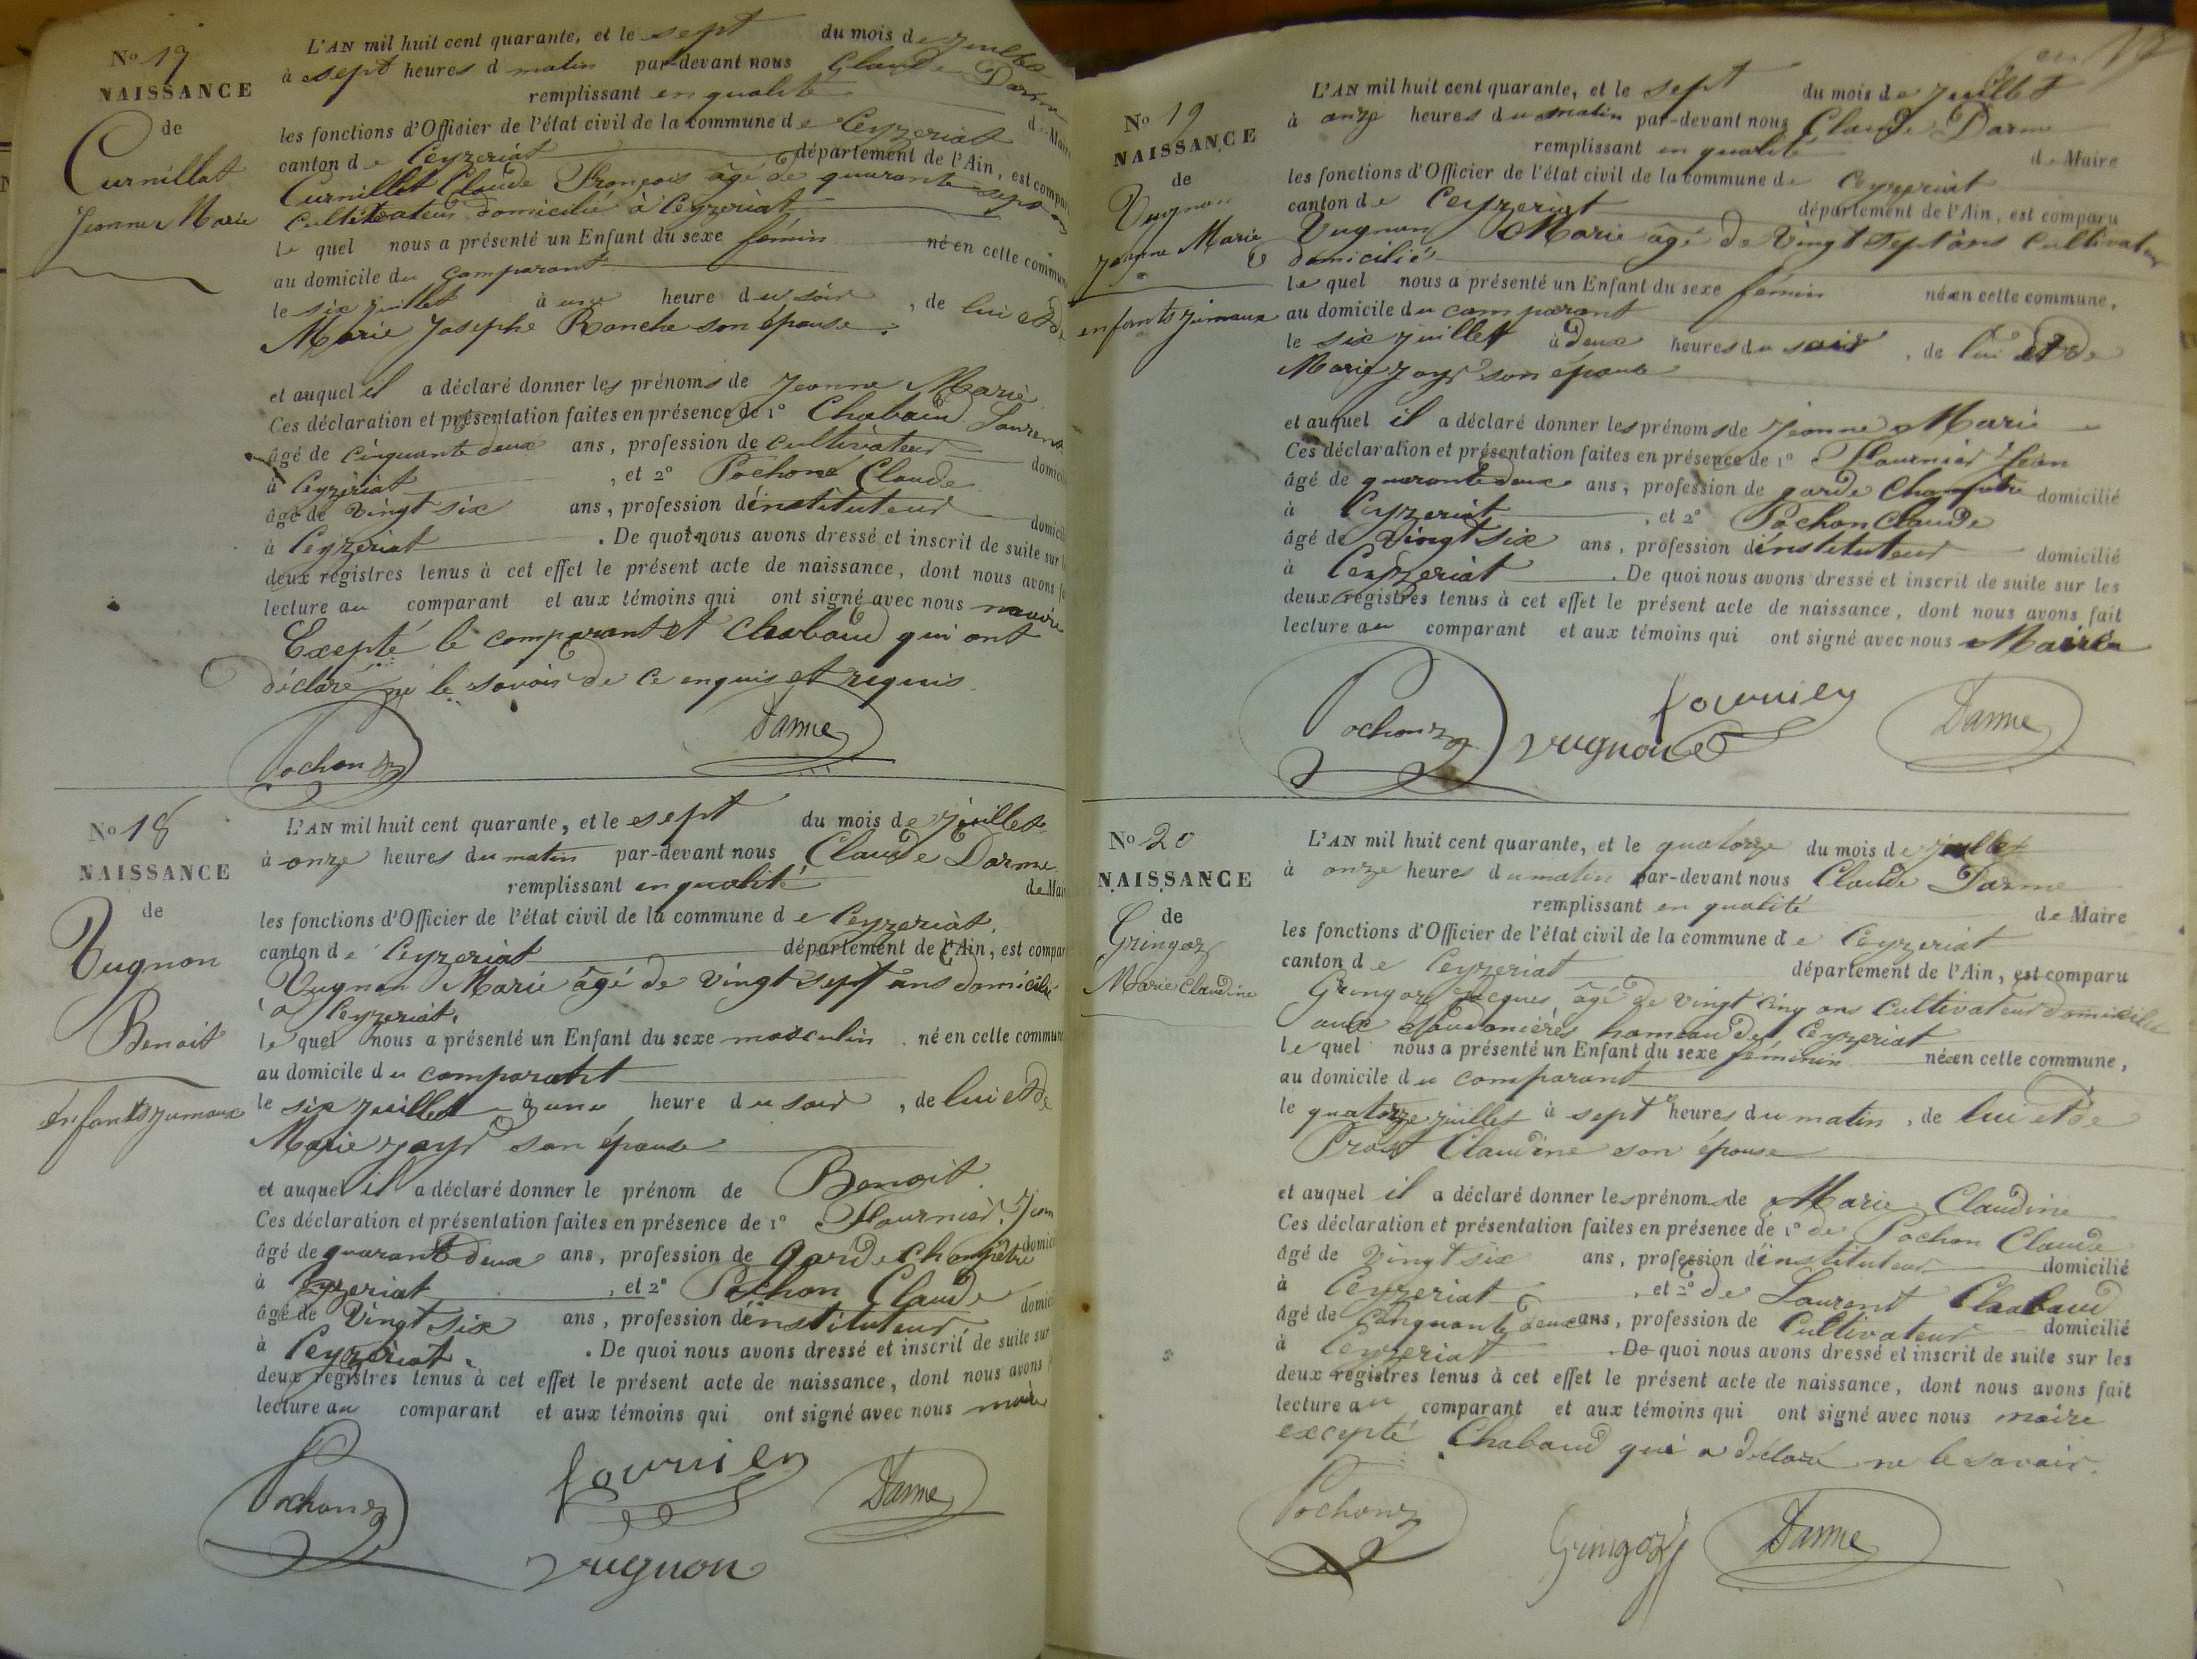 No 17
NAISSANCE
de
Curnillat
Jeanne Marie
L'AN mil huit cent quarante, et le sept du mois de juillet
à sept heures d matin par-devant nous Claude Darme
remplissant en qualité de Maire
les fonctions d'Officier de l'état civil de la commune de Ceyzeriat
canton de Ceyzeriat département de l'Ain, est compa
Curnillat Claude François âgé de quarante sept ans
Cultivateur domicilié à Ceyzeriat
le quel nous a présenté un Enfant du sexe fémin né en cette commun
au domicile du comparant
le six juillet à une heure du soir, de lui et de
Marie Josephe Ranche son épouse.
et auquel il a déclaré donner les prénoms de Jeanne Marie
Ces déclaration et présentation faites en présence de 1° Chabaud Laurent
âgé de cinquante deux ans, profession de cultivateur domici
à Ceyzeriat, et 2° Pochon Claude
âgé de vingt six ans, profession d'instituteur domici
à Ceyzeriat. De quoi nous avons dressé et inscrit de suite sur
deux registres tenus à cet effet le présent acte de naissance, dont nous avons
lecture au comparant et aux témoins qui ont signé avec nous maire
Excepté le comparant et Chabaud qui ont
déclaré ne le savoir de ce enquis et requis.
Pochon Darme
No 18
NAISSANCE
de
Vugnon
Benoit
enfants jumaux
L'AN mil huit cent quarante, et le sept du mois de juillet
à onze heures du matin par-devant nous Claude Darme
remplissant en qualité de Mai
les fonctions d'Officier de l'état civil de la commune de Ceyzeriat.
canton de Ceyzeriat département de l'Ain, est compar
Vugnon Marie âgé de vingt sept ans domicilié
à Ceyzeriat.
le quel nous a présenté un Enfant du sexe masculin né en cette commune
au domicile du comparant
le six juillet à une heure du soir, de lui et de
Marie Jayr son épouse
et auquel il a déclaré donner le prénom de Benoit.
Ces déclaration et présentation faites en présence de 1° Fournier Jean
âgé de quarante deux ans, profession de garde champêtre domici
à Ceyzeriat, et 2° Pochon Claude
âgé de vingt six ans, profession d'instituteur domici
à Ceyzeriat. De quoi nous avons dressé et inscrit de suite sur
deux registres tenus à cet effet le présent acte de naissance, dont nous avons
lecture au comparant et aux témoins qui ont signé avec nous maire
Pochon fournier Darme
Vugnon
No 19
NAISSANCE
de
Vugnon
Jeanne Marie
enfants jumaux
L'AN mil huit cent quarante, et le sept du mois de juillet
à onze heures du matin par-devant nous Claude Darme
remplissant en qualité de Maire
les fonctions d'Officier de l'état civil de la commune de Ceyzeriat
canton de Ceyzeriat département de l'Ain, est comparu
Vugnon Marie âgé de vingt sept ans cultivateur
domicilié
le quel nous a présenté un Enfant du sexe fémin née en cette commune,
au domicile du comparant
le six juillet à deux heures du soir, de lui et de
Marie Jayr son épouse
et auquel il a déclaré donner les prénoms de Jeanne Marie
Ces déclaration et présentation faites en présence de 1° Fournier Jean
âgé de quarante deux ans, profession de garde champêtre domicilié
à Ceyzeriat, et 2° Pochon Claude
âgé de vingt six ans, profession d'instituteur domicilié
à Ceyzeriat. De quoi nous avons dressé et inscrit de suite sur les
deux registres tenus à cet effet le présent acte de naissance, dont nous avons fait
lecture au comparant et aux témoins qui ont signé avec nous Maire
Pochon fournier Darme
Vugnon
No 20
NAISSANCE
de
Gringoz
Marie Claudine
L'AN mil huit cent quarante, et le quatorze du mois de juillet
à onze heures du matin par-devant nous Claude Darme
remplissant en qualité de Maire
les fonctions d'Officier de l'état civil de la commune de Ceyzeriat
canton de Ceyzeriat département de l'Ain, est comparu
Gringoz Jacques âgé de vingt cinq ans cultivateur domicilié
aux hameau de Ceyzeriat
le quel nous a présenté un Enfant du sexe féminin née en cette commune,
au domicile du comparant
le quatorze juillet à sept heures du matin, de lui et de
Prost Claudine son épouse
et auquel il a déclaré donner les prénoms de Marie Claudine
Ces déclaration et présentation faites en présence de 1° de Pochon Claude
âgé de vingt six ans, profession d'instituteur domicilié
à Ceyzeriat, et 2° de Laurent Chabaud
âgé de cinquante deux ans, profession de Cultivateur domicilié
à Ceyzeriat. De quoi nous avons dressé et inscrit de suite sur les
deux registres tenus à cet effet le présent acte de naissance, dont nous avons fait
lecture au comparant et aux témoins qui ont signé avec nous maire
excepté Chabaud qui a déclaré ne le savoir.
Pochon Gringoz Darme